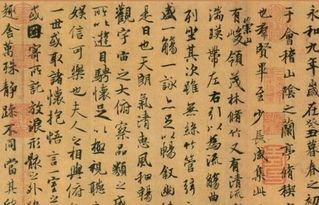 永和九年歲在癸丑暮春之初
于會稽山陰之蘭亭脩稧
也群賢畢至少長咸集此
崇山
有峻領茂林脩竹又有清流
湍暎帶左右引以為流觴曲
列坐其次雖無絲竹管弦
盛一觴一詠亦足以暢敘幽
是日也天朗氣清惠風和暢
觀宇宙之大俯察品類之盛
所以遊目騁懷足以極視聽
娛信可樂也夫人之相與俯仰
一世或取諸懷抱悟言一室
或因寄所託放浪形骸之外
趣舍萬殊靜躁不同當其欣